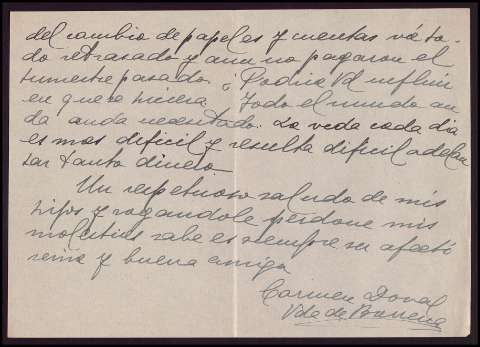 del cambio de papeles y cuentas vá to-
do retrasado y aun no pagaron el
trimestre pasado. ¿ Podria Vd influir
en que se hiciera. Todo el mundo an-
da anda necesitado. La vida cada dia
es mas dificil y resulta dificil adelan
tar tanto dinero.
Un respetuoso saludo de mis
hijos y rogandole perdone mis
molestias sabe es siempre su afecti
sima y buena amiga
Carmen Doval
Vda de